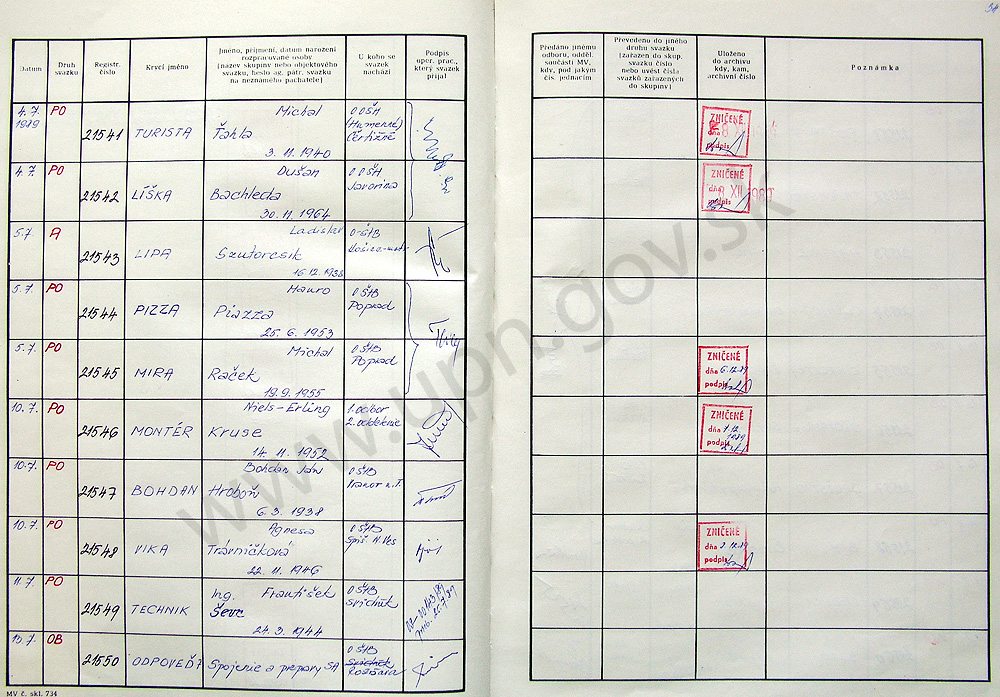 34
Datum
Druh svazku
Registr. číslo
Krycí jméno
Jméno, příjmení, datum narození
rozpracované osoby
(název skupiny nebo objektového
svazku, heslo ag. pátr. svazku
na neznámého pachatele)
U koho se
svazek
nachází
Podpis
oper. prac.,
který svazek
přijal
Předáno jinému
odboru, odděl.
součásti MV,
kdy, pod jakým
čís. jednacím
Převedeno do jiného
druhu svazku
(zařazen do skup.
svazku číslo
nebo uvést čísla
svazků zařazených
do skupiny)
Uloženo
do archivu
kdy, kam,
archivní číslo
Poznámka
4.7. 1989 PO 21541 TURISTA Michal Ťahla 3. 11. 1940 OOŠH (Humenné) Čertižné
ZNIČENÉ
dňa
podpis
4.7. PO 21542 LÍŠKA Dušan Bachleda 30. 11. 1964 OOŠH Javorina
ZNIČENÉ
dňa XII
podpis
5.7. A 21543 LIPA Ladislav Szutorcsik 16.12. 1938 OŠtB
5.7. PO 21544 PIZZA Mauro Piazza 25. 6. 1953 OŠtB Poprad
5.7. PO 21545 MIRA Michal Raček 19. 9. 1955 OŠtB Poprad
ZNIČENÉ
dňa 6.12.89
podpis
10.7. PO 21546 MONTÉR Niels-Erling Kruse 14. 11. 1952 1.odbor 2.oddelenie
ZNIČENÉ
dňa 1.12. 1989
podpis
10.7. PO 21547 BOHDAN Bohdan Ján Hroboň 6. 3. 1938 OŠtB
10.7. PO 21548 VIKA Agnesa Trávničková 22. 11. 1946 OŠtB Spiš. N. Ves
ZNIČENÉ
dňa 7.12.89
podpis
11.7. PO 21549 TECHNIK Ing. František Ševc 24. 3. 1944 OŠtB Svidník
13.7. OB 21550 ODPOVEĎ 1 Spojenie a prepary SA OŠtB Svidník Rožňava
MV č. skl. 734
www.upn.gov.sk